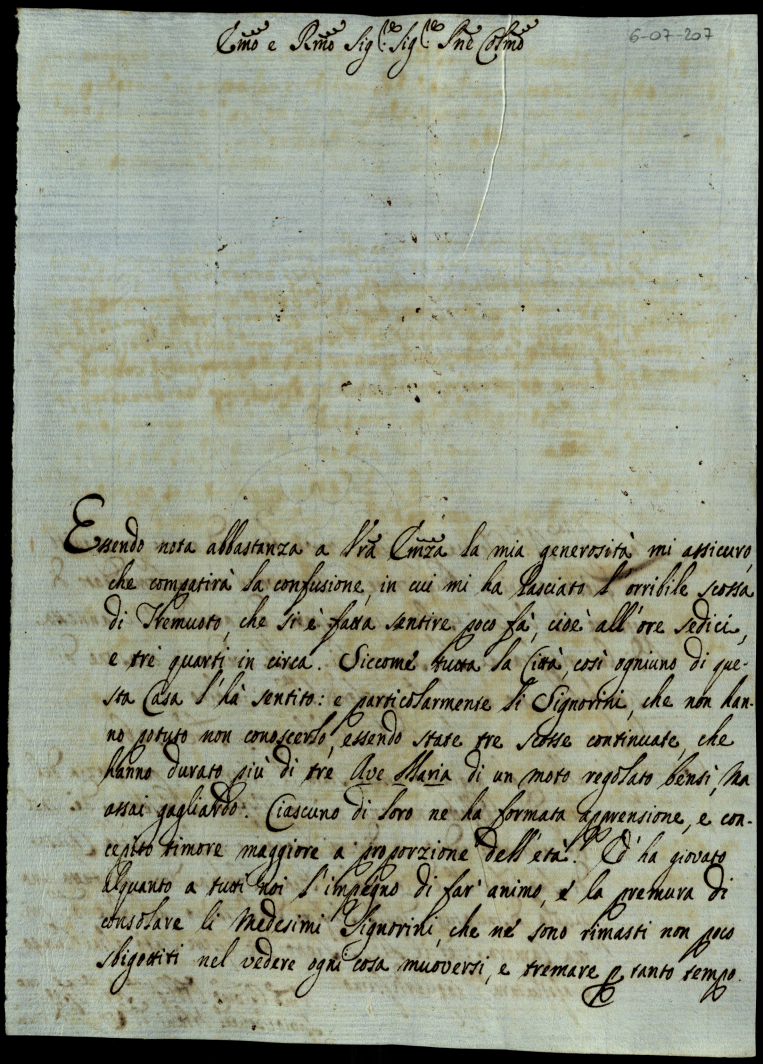 Em̃o e Rm̃o Sig.r Sig.r Pñe Colm̃o
6-07-207
Essendo nota abbastanza a Vrã Em̃za la mia generosità mi assicuro,
che compatirà la confusione, in cui mi ha lasciato l'orribile scossa
di Tremuoto, che si è fatta sentire poco fà, cioè all'ore sedici,
e trè quarti in circa. Siccome tutta la Città, così ogniuno di que-
sta Casa l'hà sentito: e particolarmente li Signorini, che non han-
no potuto non conoscerlo, essendo state tre scosse continuate, che
hanno durato più di trè Ave Maria di un moto regolato bensì, ma
assai gagliardo. Ciascuno di loro ne ha formata apprensione, e con-
cepito timore maggiore a proporzione dell'età. Ed ha giovato
alquanto a tutti noi l'impegno di far' animo, e la premura di
consolare li medesimi Signorini, che ne sono rimasti non poco
sbigottiti nel vedere ogni cosa muoversi, e tremare p tanto tempo.